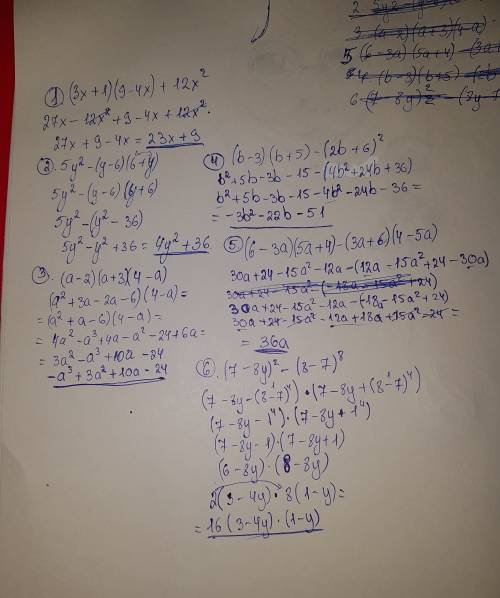 2 5y2-(y-6)(6
3 (a-2)(a+3)(4-a)
5 (6-3a)(5a+4)-(3a
4 (b-3)(b+5)-(2b
6-(7-8y)²-(8y-7
① (3x+1)(9-4x)+12x²
27x-12x²+9-4x+12x²
27x+9-4x=23x+9
② 5y²-(y-6)(6+y)
5y²-(y-6)(y+6)
5y²-(y²-36)
5y²-y²+36=4y²+36
③ (a-2)(a+3)(4-a)
(a²+3a-2a-6)(4-a)=
=(a²+a-6)(4-a)=
=4a²-a³+4a-a²-24+6a=
=3a²-a³+10a-24
-a³+3a²+10a-24
④ (b-3)(b+5)-(2b+6)²
b²+5b-3b-15-(4b²+24b+36)
b²+5b-3b-15-4b²-24b-36=
=-3b²-22b-51
⑤ (6-3a)(5a+4)-(3a+6)(4-5a)
30a+24-15a²-12a-(12a-15a²+24-30a)
30a+24-15a²-12a-(-18a-15a²+24)
30a+24-15a²-12a+18a+15a²-24=
=36a
⑥ (7-8y)²-(8-7)⁸
(7-8y-(8-7)⁴)·(7-8y+(8-7)⁴)
(7-8y-1⁴)·(7-8y+1⁴)
(7-8y-1)·(7-8y+1)
(6-8y)·(8-8y)
2(3-4y)·8(1-y)=
=16(3-4y)·(1-y)